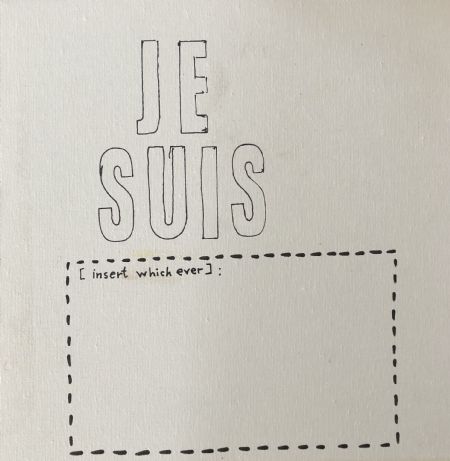 JE
SUIS
[ insert which ever ] :